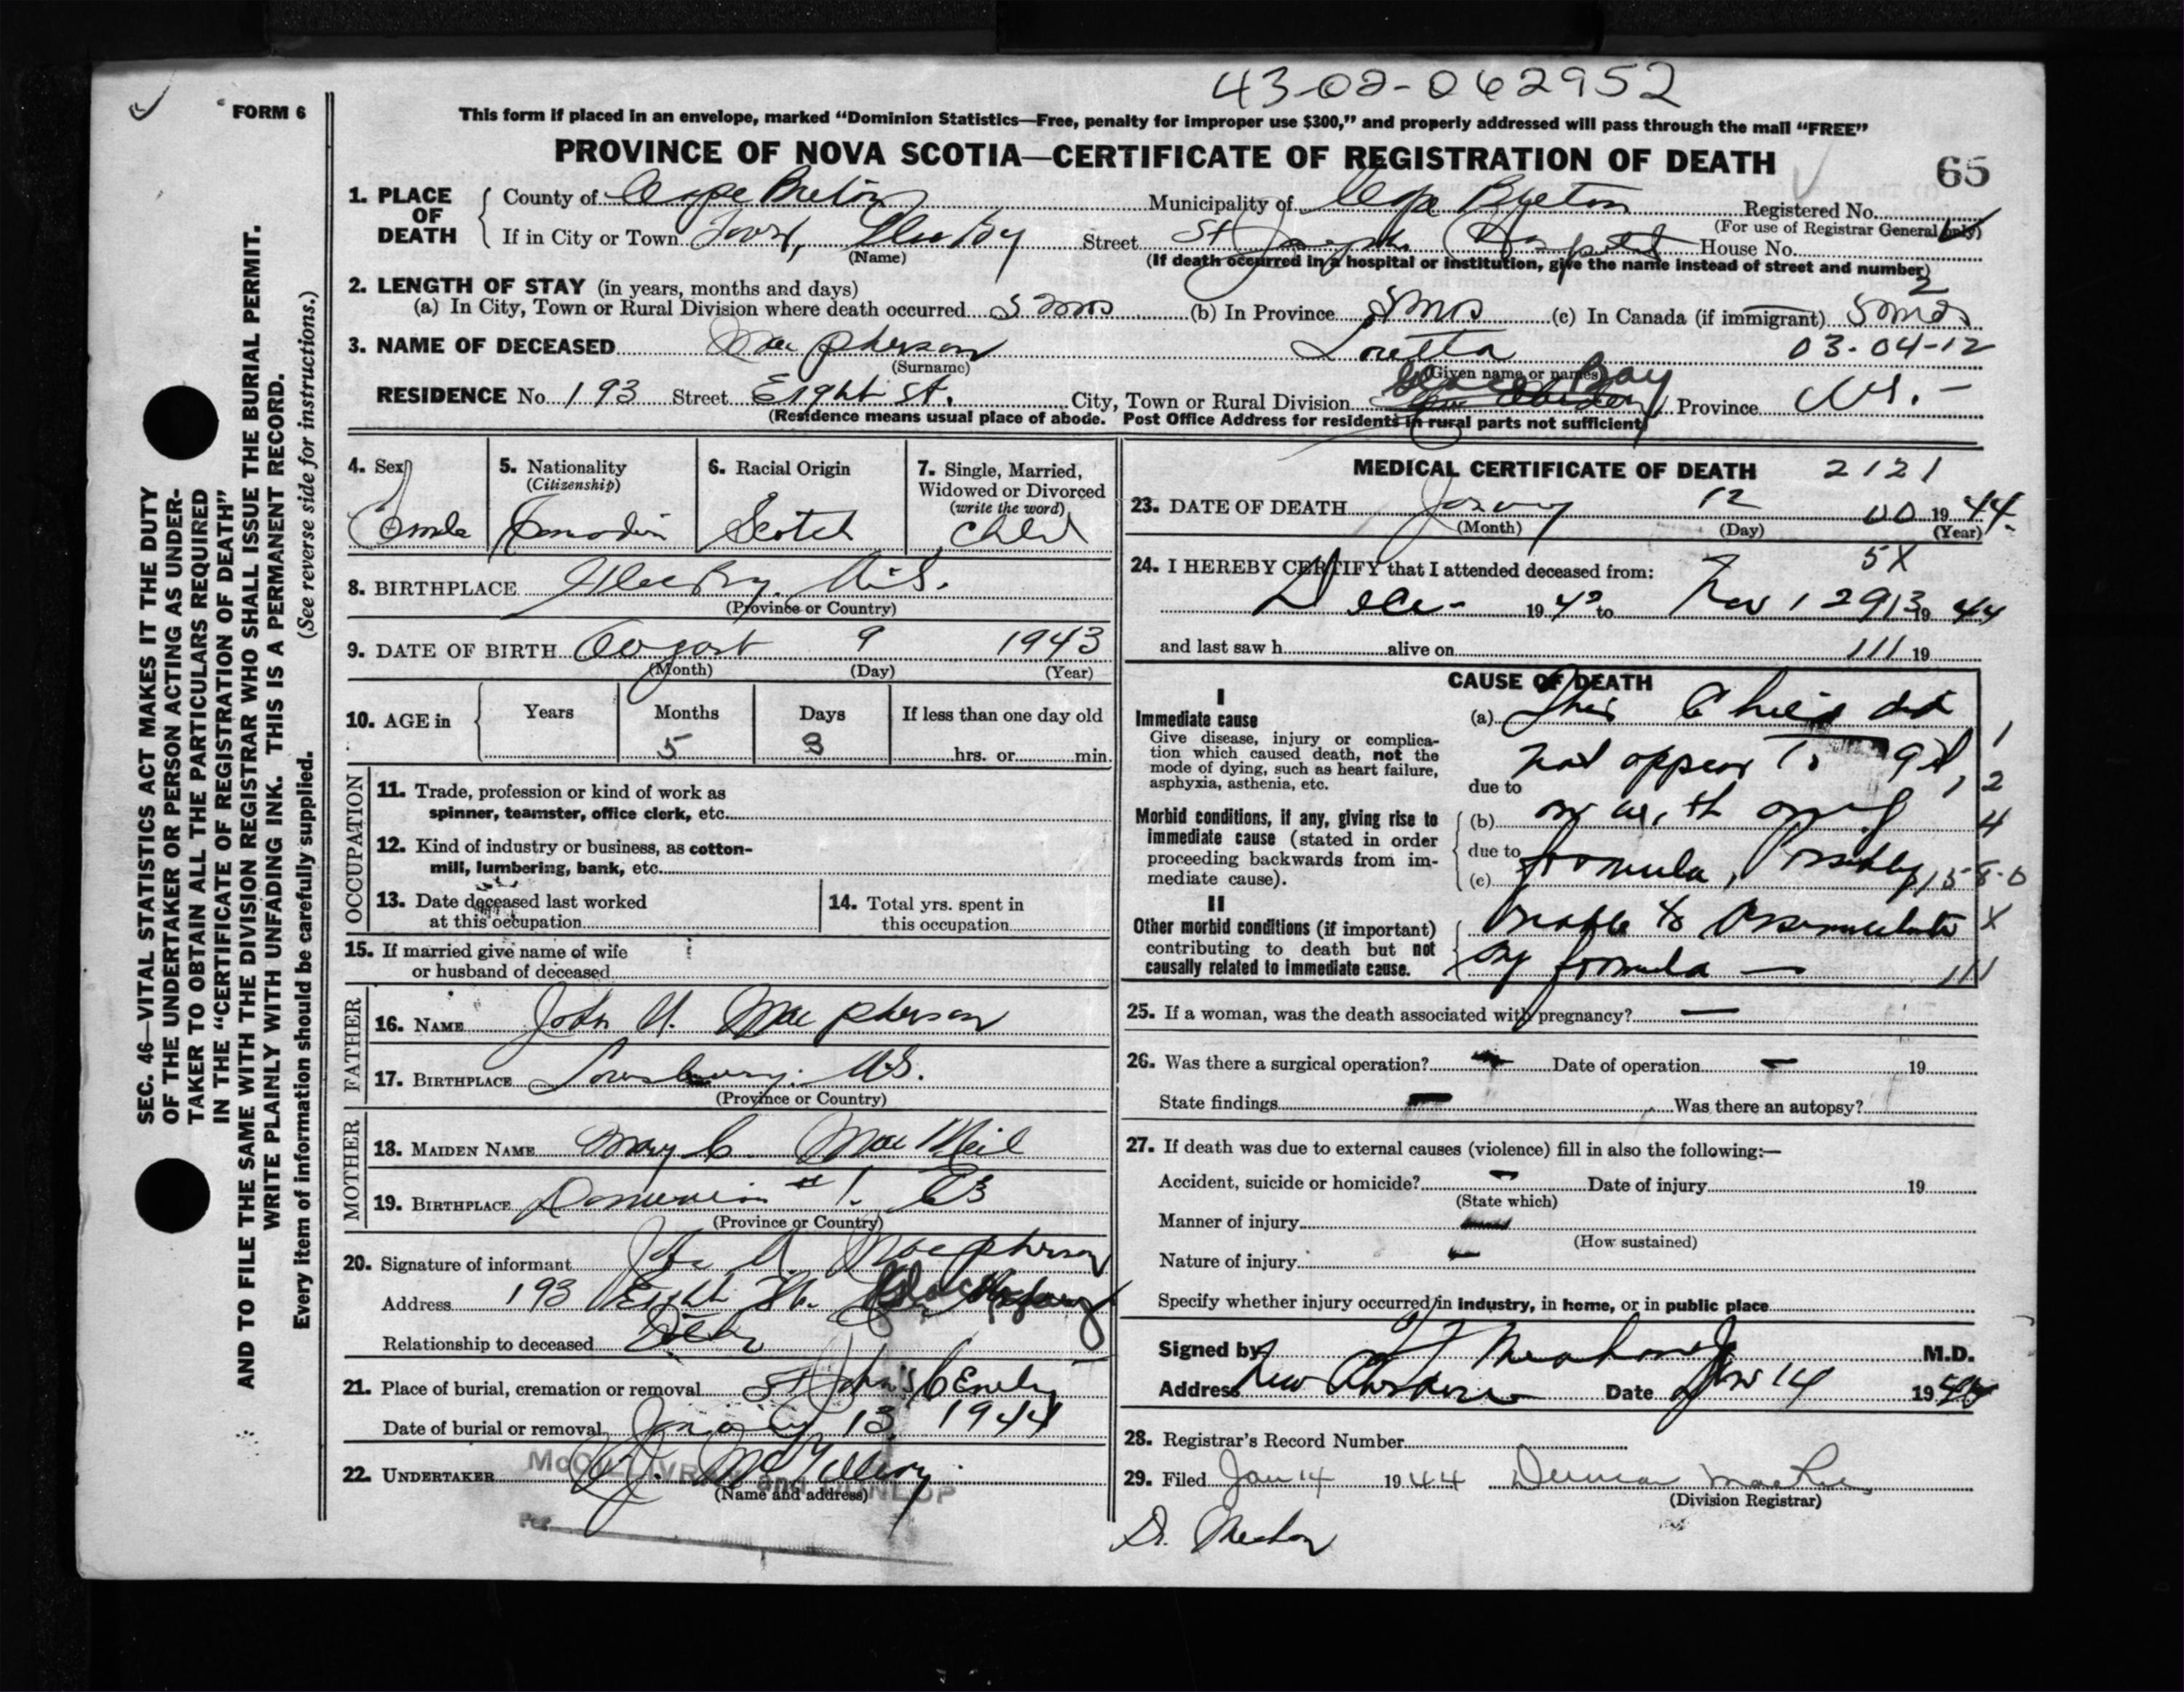 43-02-062952
FORM 6
This form if placed in an envelope, marked "Dominion Statistics—Free, penalty for improper use $300," and properly addressed will pass through the mail "FREE"
PROVINCE OF NOVA SCOTIA—CERTIFICATE OF REGISTRATION OF DEATH
65
1. PLACE OF DEATH
County of Cape Breton Municipality of Cape Breton Registered No.
(For use of Registrar General only)
If in City or Town Town, Glace Bay Street St Joseph Hospital House No.
(Name)
(If death occurred in a hospital or institution, give the name instead of street and number)
2. LENGTH OF STAY (in years, months and days)
(a) In City, Town or Rural Division where death occurred 5 mos (b) In Province 5 mos (c) In Canada (if immigrant) 5 mos
2
3. NAME OF DECEASED MacPherson Loretta 03-04-12
(Surname) (Given name or names)
RESIDENCE No. 193 Street Eighth St. City, Town or Rural Division Glace Bay Province N.S.
(Residence means usual place of abode. Post Office Address for residents in rural parts not sufficient)
4. Sex
5. Nationality
(Citizenship)
Canadian
6. Racial Origin
Scotch
7. Single, Married, Widowed or Divorced
(write the word)
Child
8. BIRTHPLACE Glace Bay, N.S.
(Province or Country)
9. DATE OF BIRTH August 9 1943
(Month) (Day) (Year)
10. AGE in Years Months Days If less than one day old
5 3 hrs. or min.
OCCUPATION
11. Trade, profession or kind of work as
spinner, teamster, office clerk, etc.
12. Kind of industry or business, as cotton-
mill, lumbering, bank, etc.
13. Date deceased last worked
at this occupation
14. Total yrs. spent in
this occupation
15. If married give name of wife
or husband of deceased
FATHER
16. NAME John A. MacPherson
17. BIRTHPLACE Louisbourg. N.S.
(Province or Country)
MOTHER
18. MAIDEN NAME Mary C. MacNeil
19. BIRTHPLACE Dominion #1. CB
(Province or Country)
20. Signature of informant John A. MacPherson
Address 193 Eighth St. Glace Bay
Relationship to deceased
21. Place of burial, cremation or removal St John's Cemetery
Date of burial or removal January 13, 1944
22. UNDERTAKER
(Name and address)
McGILLIVRAY and DUNLOP
Per
MEDICAL CERTIFICATE OF DEATH 2121
23. DATE OF DEATH January 12 00 1944
(Month) (Day) (Year)
5X
24. I HEREBY CERTIFY that I attended deceased from:
19 to 19 44
and last saw h alive on 111 19
CAUSE OF DEATH
I
Immediate cause
Give disease, injury or complica-
tion which caused death, not the
mode of dying, such as heart failure,
asphyxia, asthenia, etc.
Morbid conditions, if any, giving rise to
immediate cause (stated in order
proceeding backwards from im-
mediate cause).
II
Other morbid conditions (if important)
contributing to death but not
causally related to immediate cause.
(a) This Child did 1
due to not appear to get 2
(b) on with any 4
due to
(c) formula, Possibly 158-0
unable to Assimilate X
any formula — 111
25. If a woman, was the death associated with pregnancy? —
26. Was there a surgical operation? Date of operation 19
State findings Was there an autopsy?
27. If death was due to external causes (violence) fill in also the following:—
Accident, suicide or homicide? Date of injury 19
(State which)
Manner of injury
(How sustained)
Nature of injury
Specify whether injury occurred in industry, in home, or in public place
Signed by M.D.
Address New Aberdeen Date Jan 14 1944
28. Registrar's Record Number
29. Filed Jan 14 1944
(Division Registrar)
Dr.
SEC. 46—VITAL STATISTICS ACT MAKES IT THE DUTY
OF THE UNDERTAKER OR PERSON ACTING AS UNDER-
TAKER TO OBTAIN ALL THE PARTICULARS REQUIRED
IN THE "CERTIFICATE OF REGISTRATION OF DEATH"
AND TO FILE THE SAME WITH THE DIVISION REGISTRAR WHO SHALL ISSUE THE BURIAL PERMIT.
WRITE PLAINLY WITH UNFADING INK. THIS IS A PERMANENT RECORD.
Every item of information should be carefully supplied. (See reverse side for instructions.)